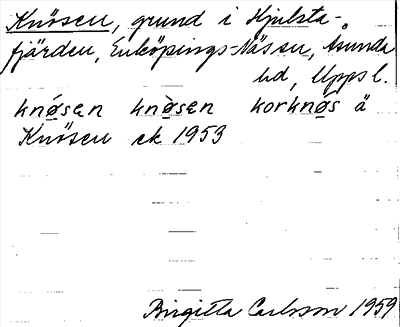 Knösen, grund i Hjulsta-
fjärden, Enköpings-Näs sn, Åsunda
hd, Uppsl.
knǿsɛn knø̀sɛn korknø̀s ä
Knösen ek 1953
Birgitta Carlsson 1959